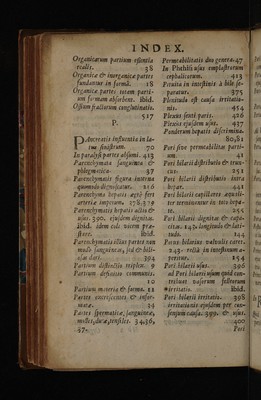 INDEX.
Organicarum partium essentia
realis. 38
Organicæ & inorganicæ partes
fundantur in formâ. 18
Organicæ partes totam parti-
um formam absorbent. ibid.
Ossium fracturam conglutinatio.
517
P.
Pancreatis influentia in la-
tus sinistrum. 70
In paralysi partes assumi. 413
Parenchymata sanguinea &
phlegmatica. 37
Parenchymatis figura intrinse
quomodo dignoscatur. 216
Parenchyma hepatis arvis fert
arteriæ imperium. 378, 379
Parenchymatis hepatis actio &
usus. 390. ejusdem dignitas.
ibid. idem cibi vacem præ-
stare. ibid.
Parenchymatis illius partes non
modo sanguineæ, sed & bili-
osæ dari. 394
Partium distinctio triplex. 9
Partium distinctio communis.
10
Partium materia & forma. 11
Partes excrescentes & infor-
matæ. 14
Partes spermaticæ, sanguineæ,
molles, duræ, tensiles. 34, 36,
67.
Permeabilitatis duo genera. 47
In Phthisi usus emplastrorum
cephalicorum. 413
Pituita in intestinis à bile se-
paratur. 375
Plenitudo est causa irritatio-
nis. 454
Plexus senti paris. 426
Plexus ejusdem usus. 427
Ponderum hepatis discrimina.
80, 81
Pori sive permeabilitas parti-
um. 41
Pori bilarii distributio & trun-
cus. 251
Pori bilarii distributio intra
hepar. 441
Pori bilarii capillares æquali-
ter terminantur in toto hepa-
te. 255
Pori bilarii dignitas & capa-
citas. 142. longitudo & lati-
tudo. 144
Porus bilarius valvulis caret.
243. rectà in intestinum a-
peritur. 154
Pori bilarii usus. 396
ad Pori bilarii usum quid con-
tribuat vasorum fulcrorum
irritatio. ibid.
Pori bilarii irritatio. 398
irritationis ejusdem per con-
sensum causa. 399. & usus.
300
Pori